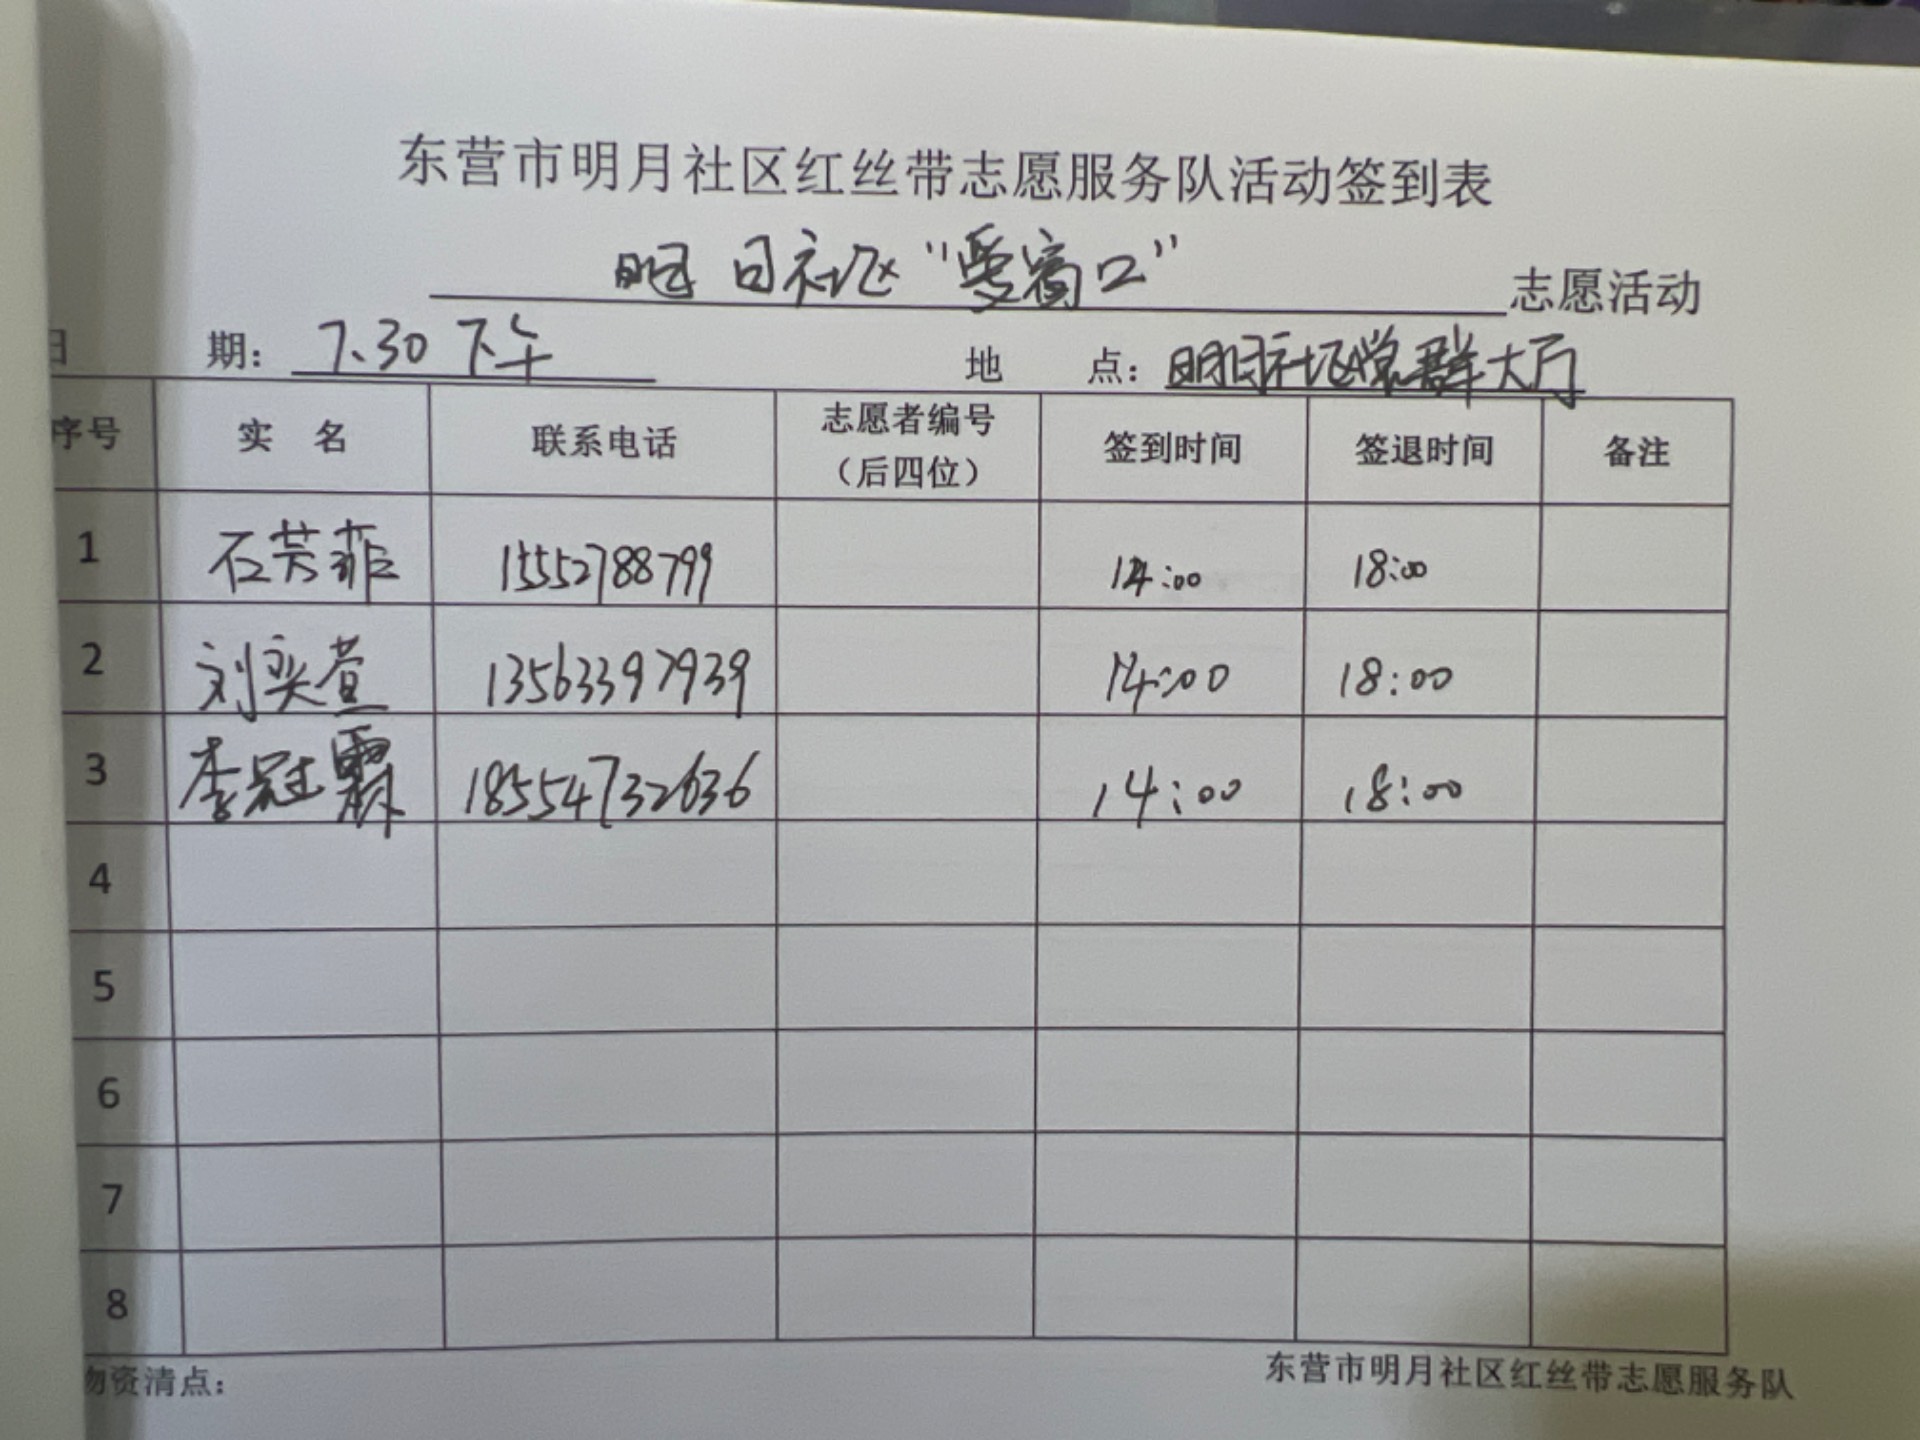 东营市明月社区红丝带志愿服务队活动签到表
明月社区“爱窗口”志愿活动
日 期：7.30 下午 地 点：明月社区党群大厅
序号 实 名 联系电话 志愿者编号（后四位） 签到时间 签退时间 备注
1 石芳菲 15552788799 14:00 18:00
2 刘奕萱 13563397939 14:00 18:00
3 李冠霖 18554732636 14:00 18:00
4
5
6
7
8
物资清点：
东营市明月社区红丝带志愿服务队